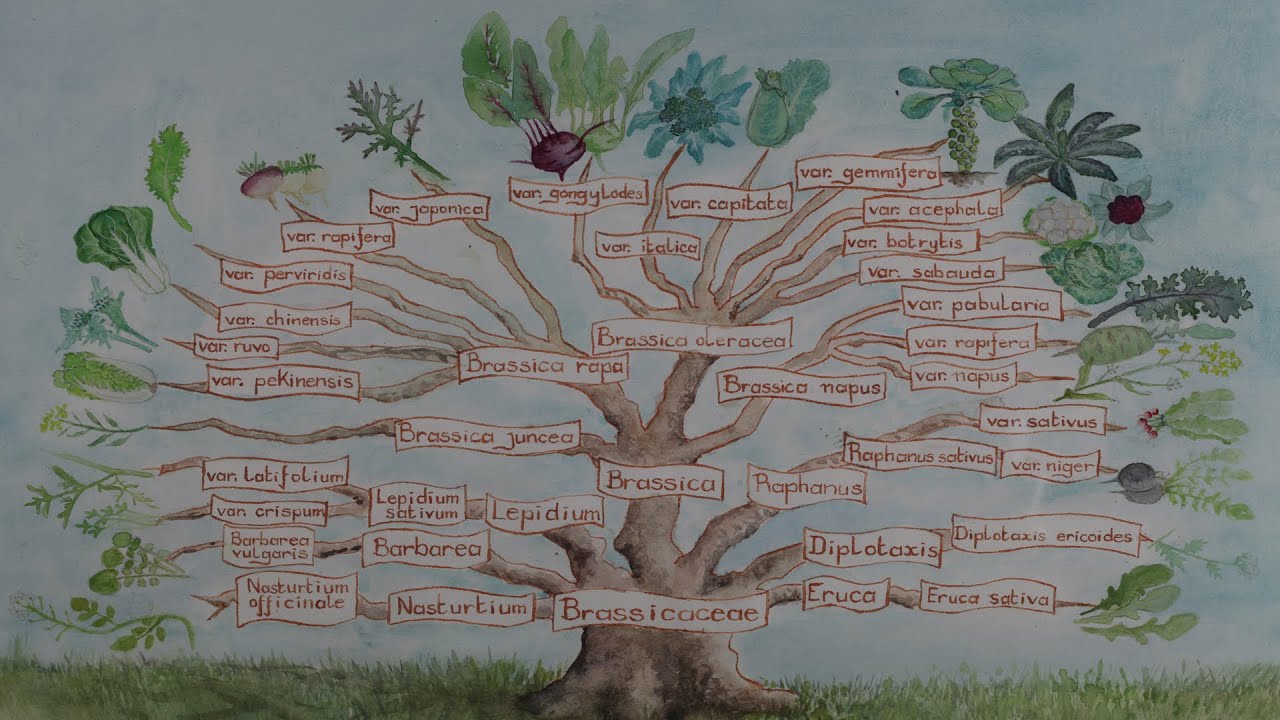 var. gemmifera
var. gongylodes
var. japonica
var. capitata
var. acephala
var. rapifera
var. italica
var. botrytis
var. perviridis
var. sabauda
var. pabularia
var. chinensis
Brassica oleracea
var. rapifera
var. ruvo
Brassica rapa
var. pekinensis
Brassica napus
var. napus
var. sativus
Brassica juncea
Raphanus sativus
var. niger
var. latifolium
Brassica
Raphanus
Lepidium
sativum
Lepidium
var. crispum
Barbarea
vulgaris
Barbarea
Diplotaxis
Diplotaxis ericoides
Nasturtium
officinale
Nasturtium
Brassicaceae
Eruca
Eruca sativa